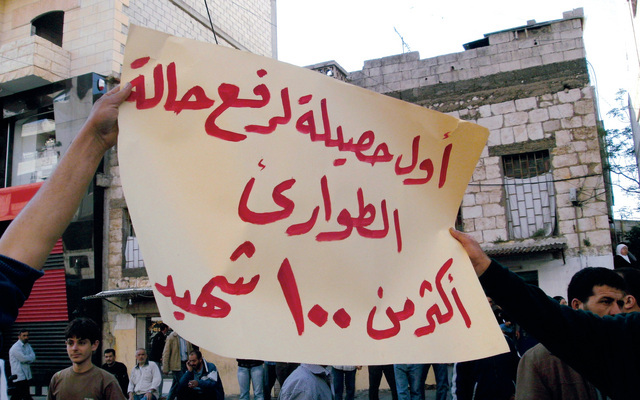 أول حصيلة لرفع حالة
الطوارئ
أكثر من ١٠٠ شهيد